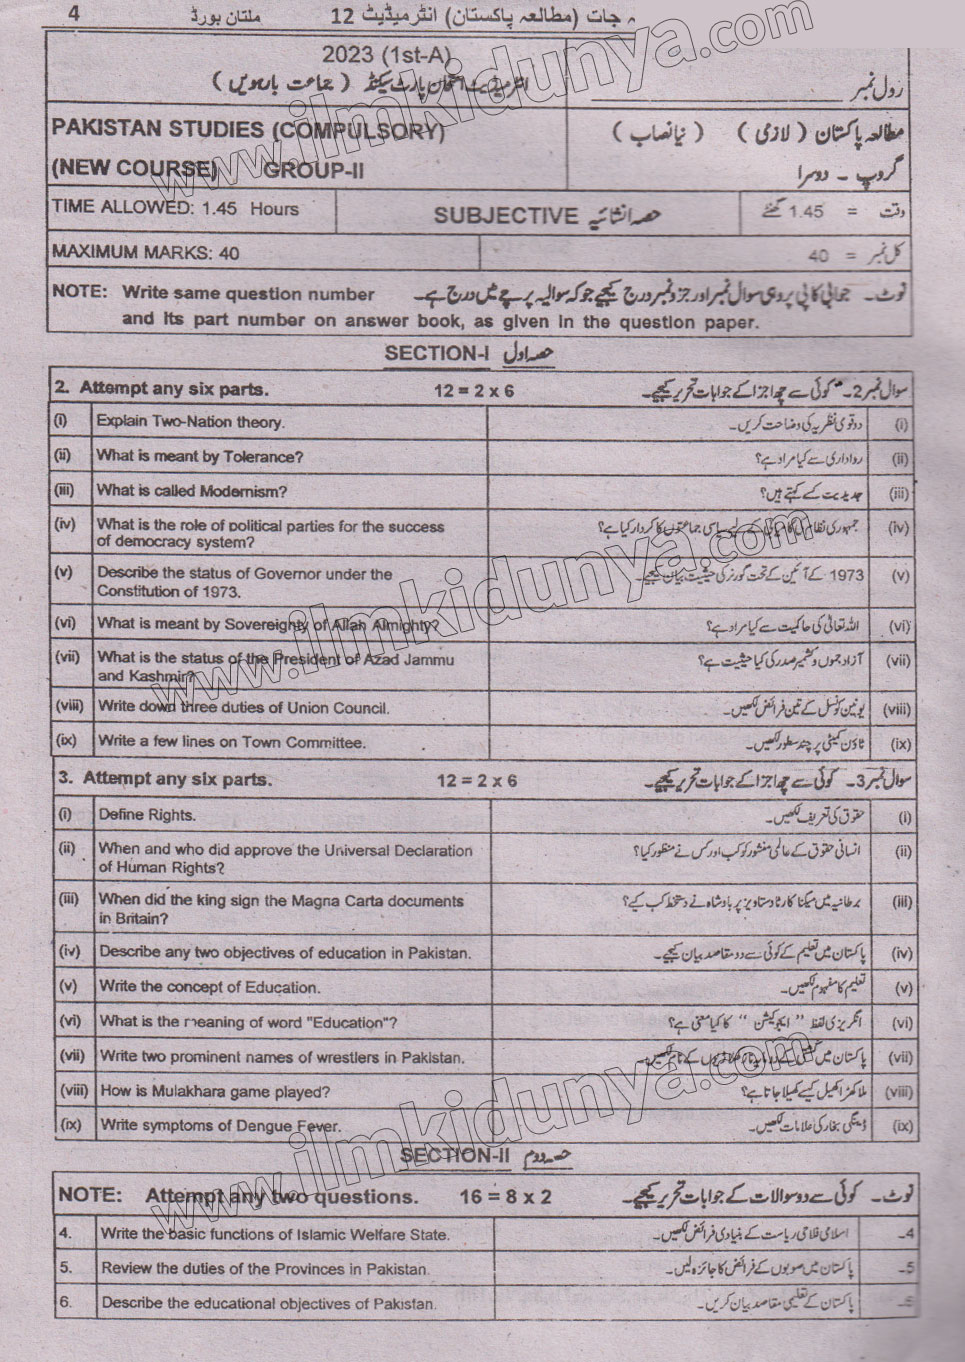 4 ملتان بورڈ ہ جات (مطالعہ پاکستان) انٹرمیڈیٹ 12
2023 (1st-A)
انٹرمیڈیٹ امتحان پارٹ سیکنڈ ( جماعت بارہویں )
رول نمبر
PAKISTAN STUDIES (COMPULSORY)
مطالعہ پاکستان ( لازمی ) ( نیا نصاب )
(NEW COURSE) GROUP-II
گروپ - دوسرا
TIME ALLOWED: 1.45 Hours SUBJECTIVE حصہ انشائیہ وقت = 1.45 گھنٹے
MAXIMUM MARKS: 40 کل نمبر = 40
NOTE: Write same question number نوٹ۔ جوابی کاپی پر وہی سوال نمبر اور جزو نمبر درج کیجیے جو کہ سوالیہ پرچے میں درج ہے۔
and its part number on answer book, as given in the question paper.
SECTION-I حصہ اول
2. Attempt any six parts. 12 = 2 x 6 سوال نمبر 2۔ کوئی سے چھ اجزا کے جوابات تحریر کیجیے۔
(i) Explain Two-Nation theory. دو قومی نظریہ کی وضاحت کریں۔ (i)
(ii) What is meant by Tolerance? رواداری سے کیا مراد ہے؟ (ii)
(iii) What is called Modernism? جدیدیت کسے کہتے ہیں؟ (iii)
(iv) What is the role of political parties for the success جمہوری نظام کی کامیابی کے لیے سیاسی جماعتوں کا کردار کیا ہے؟ (iv)
of democracy system?
(v) Describe the status of Governor under the 1973 کے آئین کے تحت گورنر کی حیثیت بیان کیجیے۔ (v)
Constitution of 1973.
(vi) What is meant by Sovereignty of Allah Almighty? اللہ تعالیٰ کی حاکمیت سے کیا مراد ہے؟ (vi)
(vii) What is the status of the President of Azad Jammu آزاد جموں و کشمیر صدر کی کیا حیثیت ہے؟ (vii)
and Kashmir?
(viii) Write down three duties of Union Council. یونین کونسل کے تین فرائض لکھیں۔ (viii)
(ix) Write a few lines on Town Committee. ٹاؤن کمیٹی پر چند سطور لکھیں۔ (ix)
3. Attempt any six parts. 12 = 2 x 6 سوال نمبر 3۔ کوئی سے چھ اجزا کے جوابات تحریر کیجیے۔
(i) Define Rights. حقوق کی تعریف لکھیں۔ (i)
(ii) When and who did approve the Universal Declaration انسانی حقوق کے عالمی منشور کو کب اور کس نے منظور کیا؟ (ii)
of Human Rights?
(iii) When did the king sign the Magna Carta documents برطانیہ میں میگنا کارٹا دستاویز پر بادشاہ نے دستخط کب کیے؟ (iii)
in Britain?
(iv) Describe any two objectives of education in Pakistan. پاکستان میں تعلیم کے کوئی سے دو مقاصد بیان کیجیے۔ (iv)
(v) Write the concept of Education. تعلیم کا مفہوم لکھیں۔ (v)
(vi) What is the meaning of word "Education"? انگریزی لفظ " ایجوکیشن " کا کیا معنی ہے؟ (vi)
(vii) Write two prominent names of wrestlers in Pakistan. پاکستان میں کشتی کے دو مایہ ناز کھلاڑیوں کے نام لکھیں۔ (vii)
(viii) How is Mulakhara game played? ملاکھڑا کھیل کیسے کھیلا جاتا ہے؟ (viii)
(ix) Write symptoms of Dengue Fever. ڈینگی بخار کی علامات لکھیں۔ (ix)
SECTION-II حصہ دوم
NOTE: Attempt any two questions. 16 = 8 x 2 نوٹ۔ کوئی سے دو سوالات کے جوابات تحریر کیجیے۔
4. Write the basic functions of Islamic Welfare State. اسلامی فلاحی ریاست کے بنیادی فرائض لکھیں۔ 4۔
5. Review the duties of the Provinces in Pakistan. پاکستان میں صوبوں کے فرائض کا جائزہ لیں۔ 5۔
6. Describe the educational objectives of Pakistan. پاکستان کے تعلیمی مقاصد بیان کریں۔ 6۔
www.ilmkidunya.com
www.ilmkidunya.com
www.ilmkidunya.com